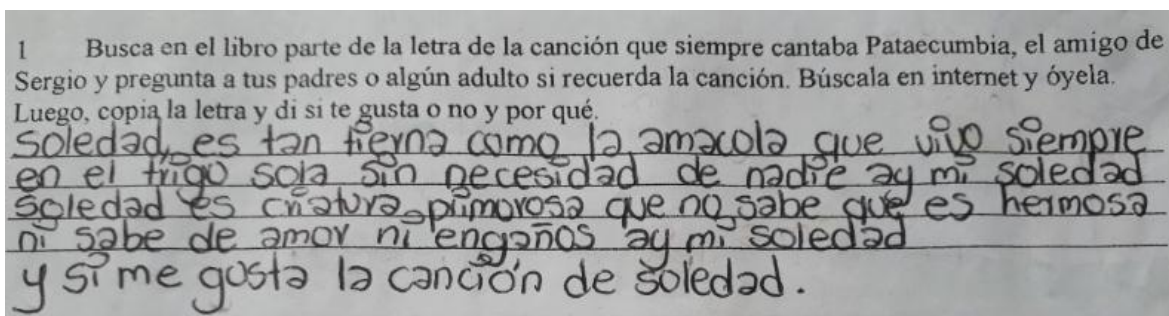 1 Busca en el libro parte de la letra de la canción que siempre cantaba Pataecumbia, el amigo de
Sergio y pregunta a tus padres o algún adulto si recuerda la canción. Búscala en internet y óyela.
Luego, copia la letra y di si te gusta o no y por qué.
soledad, es tan tierna como la amacola que vivo siempre
en el trigo sola sin necesidad de nadie ay mi soledad
soledad es criatura primorosa que no sabe que es hermosa
ni sabe de amor ni engaños ay mi soledad
y si me gusta la canción de soledad.